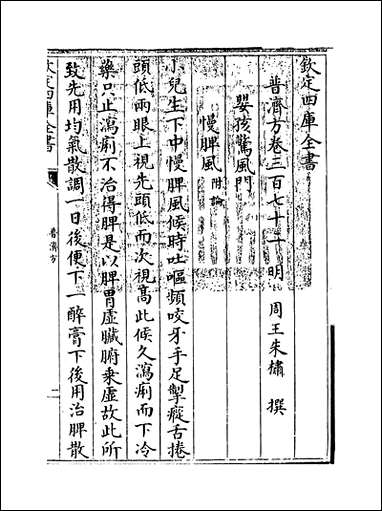 欽定四庫全書
普濟方卷三百七十 明 周王朱橚 撰
嬰孩驚風門
慢脾風 附論
小兒生下中慢脾風候時吐嘔頻咬牙手足掣瘲舌捲
頭低兩眼上視先頭低而次視高此候久瀉痢而下冷
藥只止瀉痢不治得脾是以脾胃虛臟腑乗虛故此所
致先用均氣散調一日後便下一醉膏下後用治脾散
欽定四庫全書
普濟方